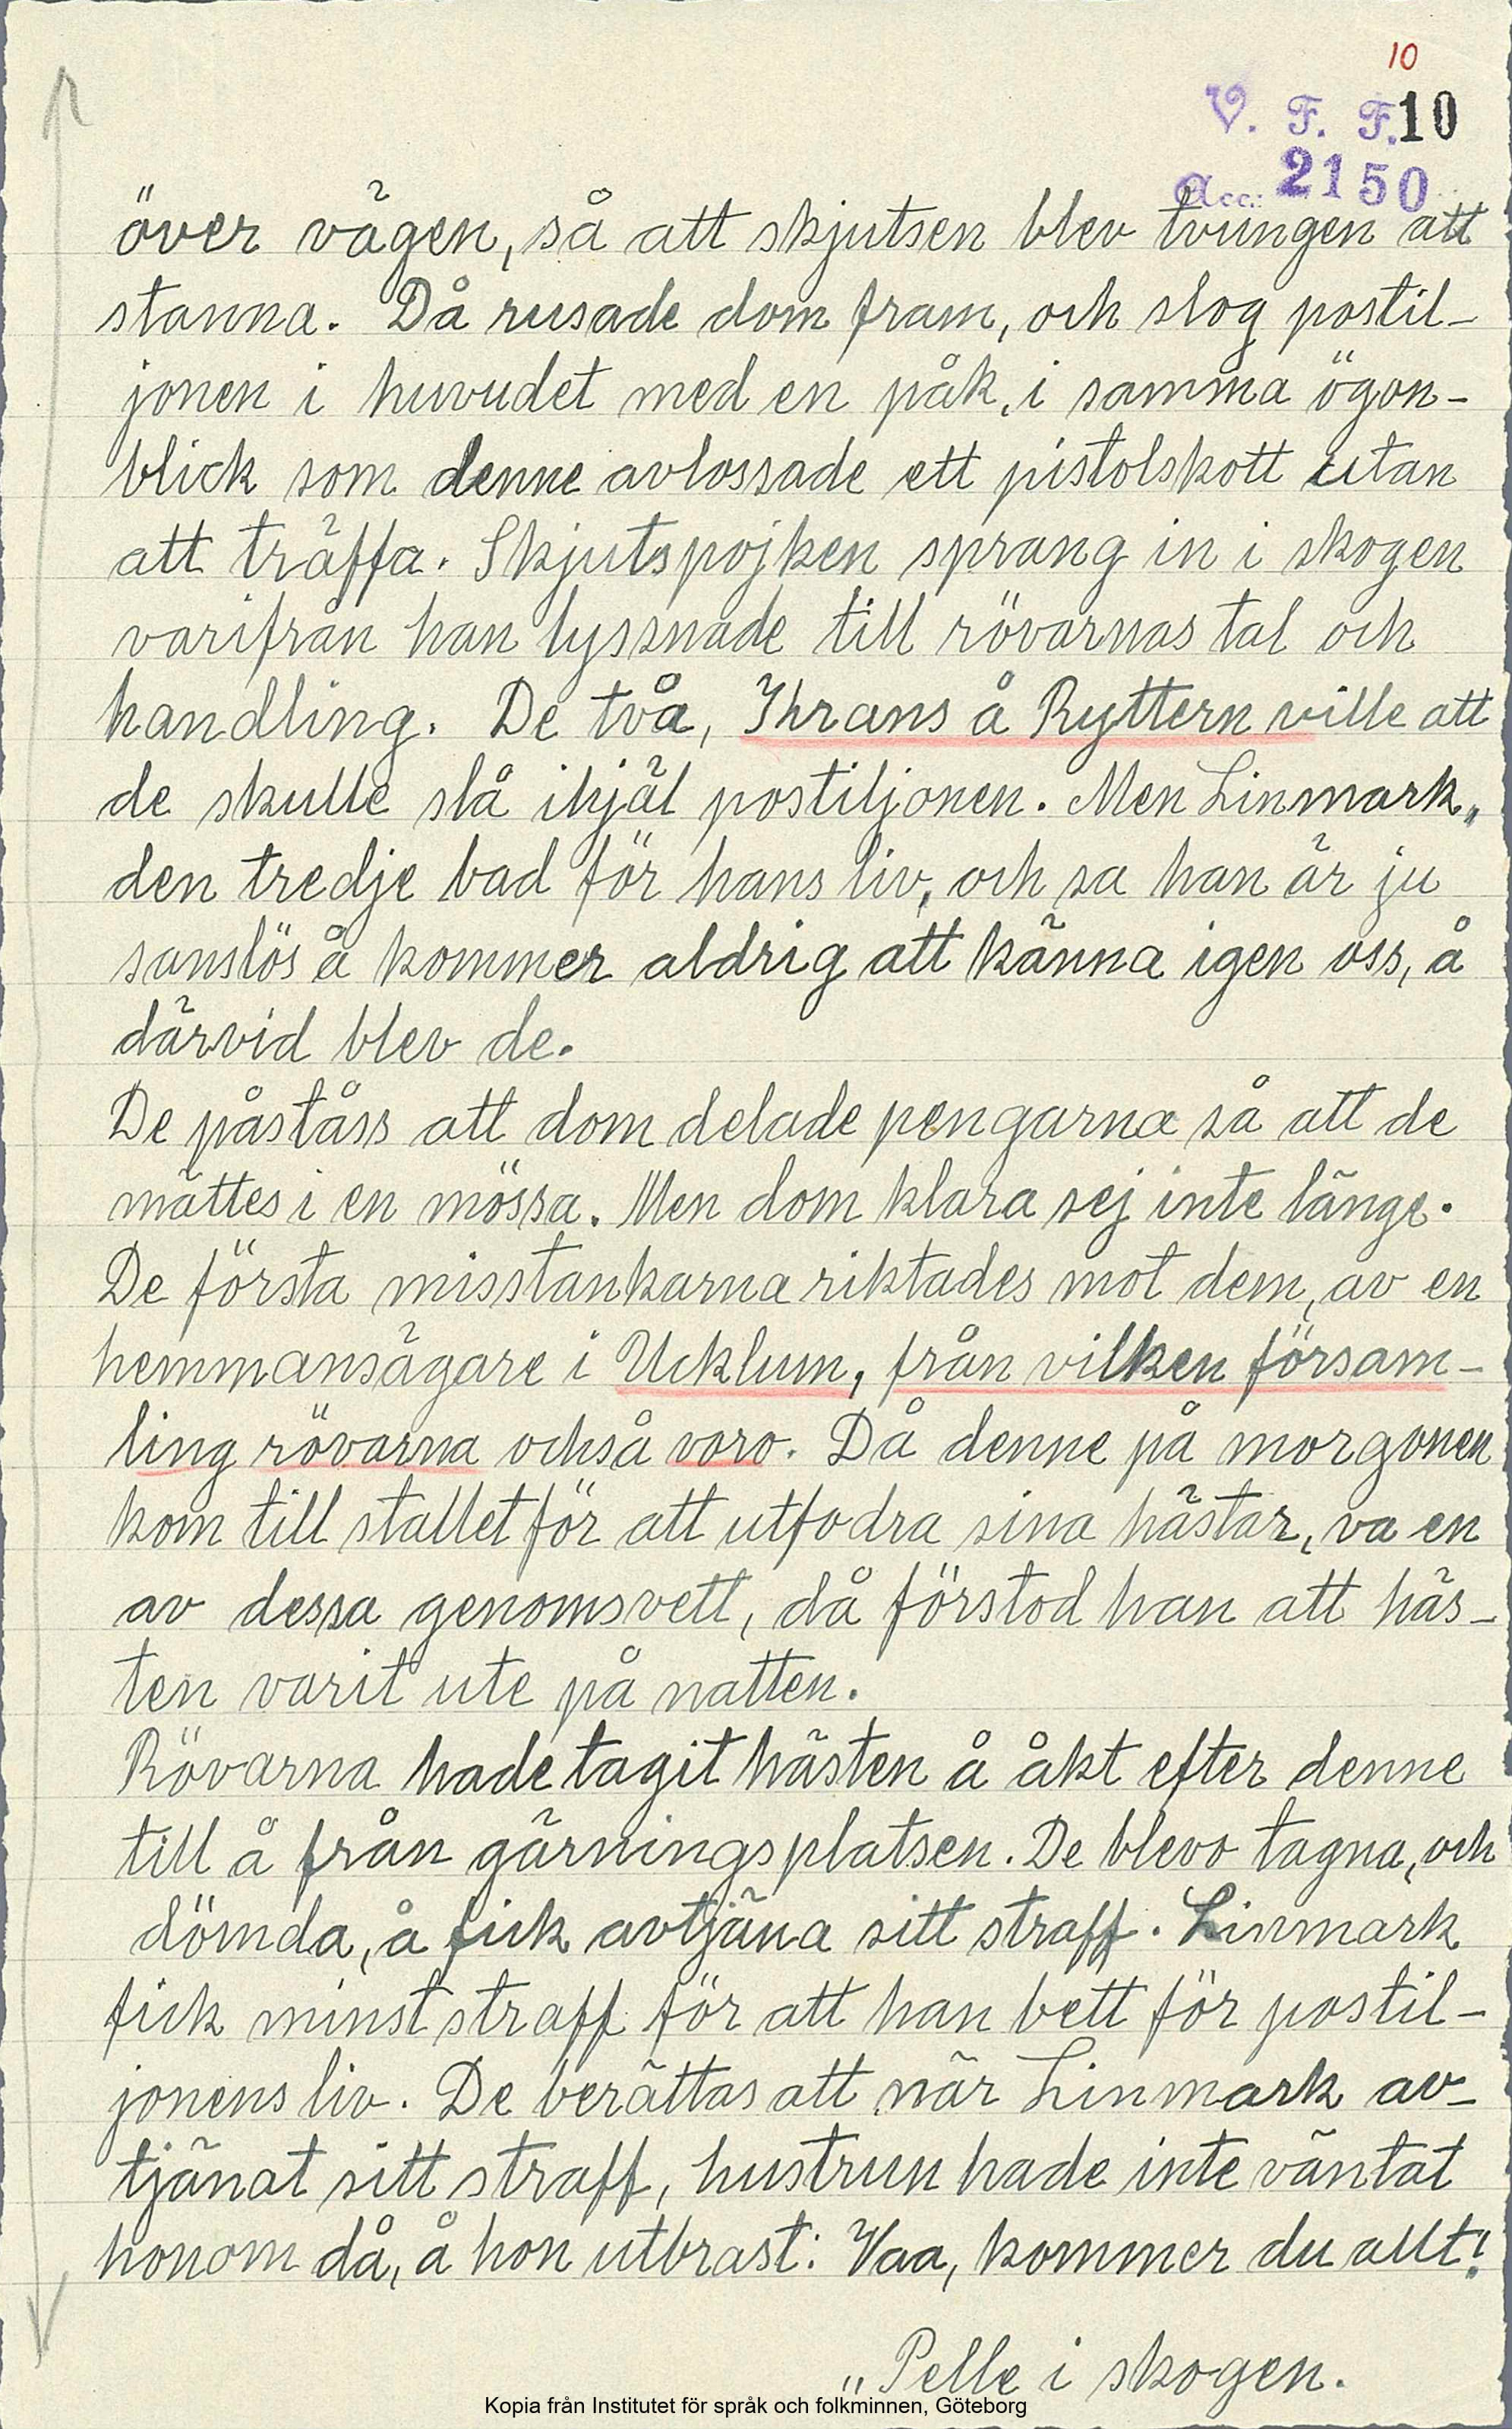 10
V. F. F. 10
Acc.: 2150
över vägen, så att skjutsen blev tvungen att
stanna. Då rusade dom fram, och slog postil-
jonen i huvudet med en påk, i samma ögon-
blick som denne avlossade ett pistolskott utan
att träffa. Skjutspojken sprang in i skogen
varifrån han lyssnade till rövarnas tal och
handling. De två, Ihrans å Ryttern ville att
de skulle slå ihjäl postiljonen. Men Linmark,
den tredje bad för hans liv, och sa han är ju
sanslös å kommer aldrig att känna igen oss, å
därvid blev de.
De påståss att dom delade pengarna så att de
mättes i en mössa. Men dom klara sej inte länge.
De första misstankarna riktades mot dem, av en
hemmansägare i Ucklum, från vilken försam-
ling rövarna också voro. Då denne på morgonen
kom till stallet för att utfodra sina hästar, va en
av dessa genomsvett, då förstod han att häs-
ten varit ute på natten.
Rövarna hade tagit hästen å åkt efter denne
till å från gärningsplatsen. De blevo tagna, och
dömda, å fick avtjäna sitt straff. Linmark
fick minst straff för att han bett för postil-
jonens liv. De berättas att när Linmark av-
tjänat sitt straff, hustrun hade inte väntat
honom då, å hon utbrast: Vaa, kommer du allt!
„Pelle i skogen.
Kopia från Institutet för språk och folkminnen, Göteborg